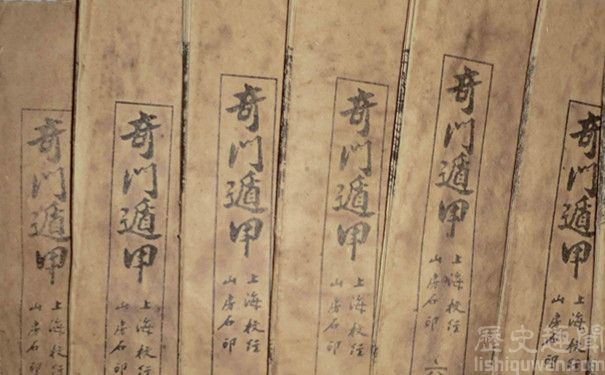 奇門遁甲
上海校經
山房石印
奇門遁甲
上海校經
山房石印
六
奇門遁甲
上海校經
山房石印
奇門遁甲
上海校經
山房石印
奇門遁甲
上海校經
山房石印
奇門遁甲
上海校經
山房石印
歷史趣聞
lishiquwen.com